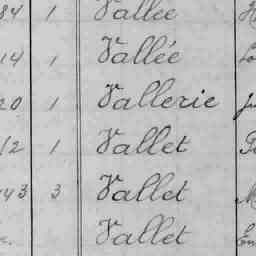 84 1 Vallée
14 1 Vallée
20 1 Vallerie
12 1 Vallet
43 3 Vallet
Vallet